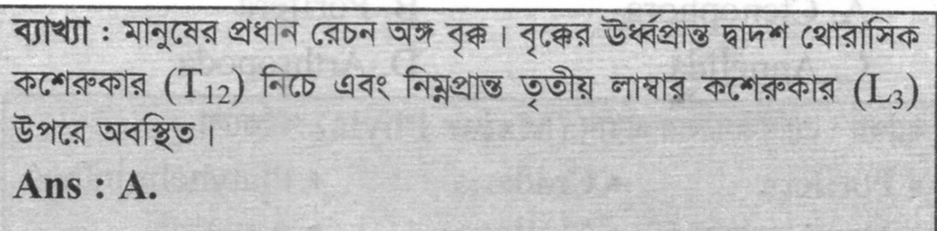 ব্যাখ্যা : মানুষের প্রধান রেচন অঙ্গ বৃক্ক। বৃক্কের ঊর্ধ্বপ্রান্ত দ্বাদশ থোরাসিক
কশেরুকার (T₁₂) নিচে এবং নিম্নপ্রান্ত তৃতীয় লাম্বার কশেরুকার (L₃)
উপরে অবস্থিত।
Ans : A.